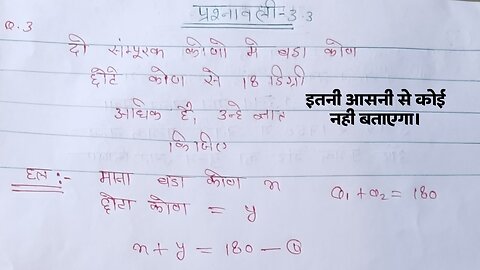 प्रश्नावली-3.3
Q.3
दो संम्पूरक कोणो मे बडा कोण
छोटे कोण से 18 डिग्री
अधिक है, उन्हे ज्ञात
किजिए
इतनी आसनी से कोई
नही बताएगा।
हल :- माना बडा कोण x
छोटा कोण = y
θ₁+θ₂=180
x+y=180 — ①